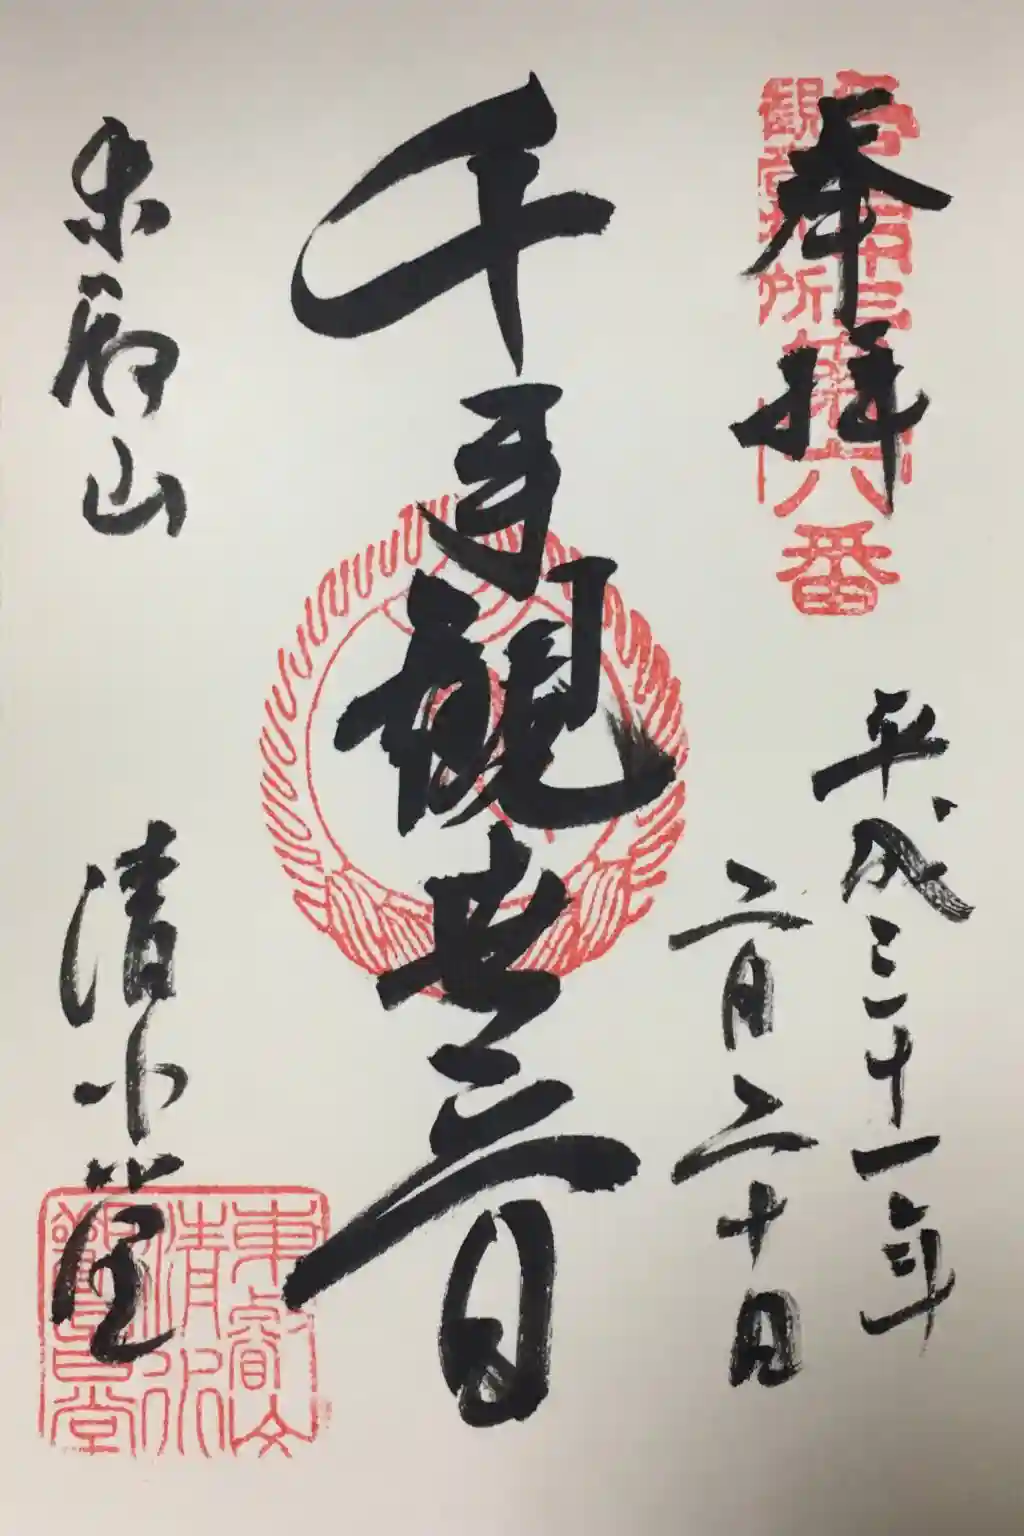 奉拝
第六番
観音札所
平成三十一年
二月二十日
千手観世音
東叡山
清水堂
東叡山
清水
観音堂